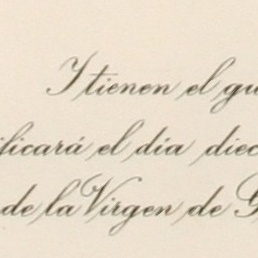 Y tienen el gu
ificará el día diec
de la Virgen de G